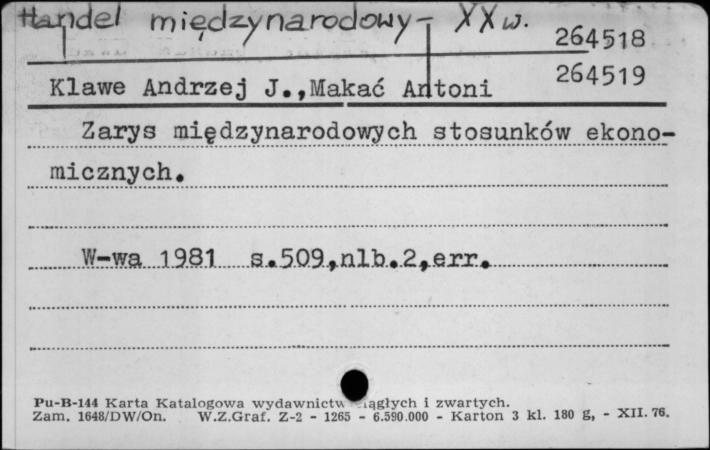 Handel międzynarodowy - XX w.
264518
264519
Klawe Andrzej J.,Makać Antoni
Zarys międzynarodowych stosunków ekono-
micznych.
W-wa 1981 s.509,nlb.2,err.
Pu-B-144 Karta Katalogowa wydawnictw ciągłych i zwartych.
Zam. 1648/DW/On. W.Z.Graf. Z-2 - 1265 - 6.590.000 - Karton 3 kl. 180 g, - XII. 76.